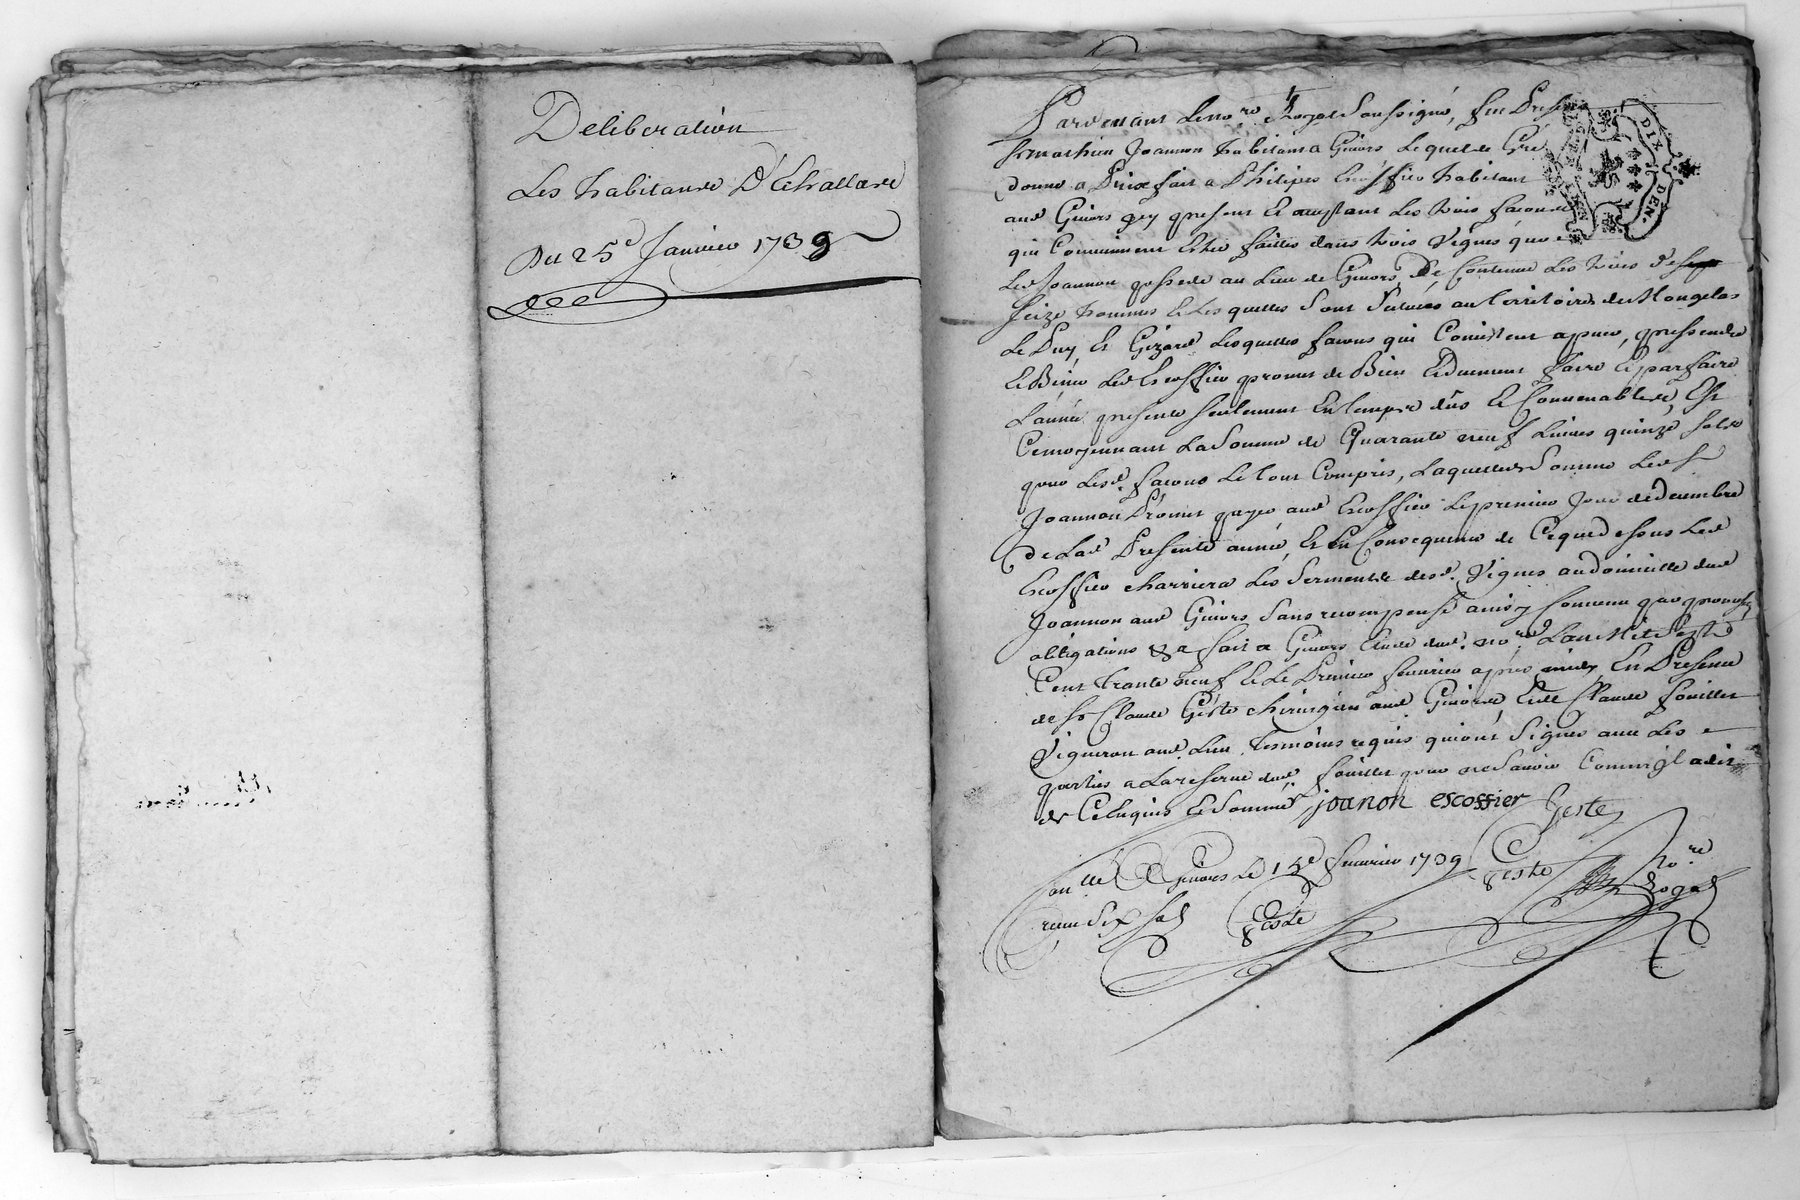 Deliberation
Les habitans D'Echallard
Du 25e Janvier 1739
Pardevant le no.re Royal Soussigné, fut Présent
sr mathieu Joannon habitant a Givors lequel de Gré
donne a Prix fait a Philipes Escoffier habitant
aud Givors icy present et acceptant les trois façons
qui Conviennent Estre faittes dans trois Vignes que
led Joannon possede au lieu de Givors, De Contenue les trois de
seize hommes et lesquelles sont Situées au territoires de Mongelas
le Puy, et Gizard lesquelles façons qui Consistent a
et Biner led Escoffier promet de Bien et duement faire et parfaire
L'année presente seulement en temps dûs et Convenables, Et
Cemoyennant la Somme de Quarante neuf livres quinze sols
pour lesd. façons le tout Compris, laquelle Somme led sr
Joannon Promet payer aud Escoffier le premier Jour de decembre
de Lad Presente année, Et en Consequence de Ceque dessus led
Escoffier charriera les Serments desd. Vignes au domicille dud
Joannon aud Givors Sans recompense ainsy Convenu par promesses
obligations &a fait a Givors Etude dud. no.re L'an Mil sept
Cent trente neuf et le Premier fevrier après midy En Presence
de sr Claude Geste chirurgien aud Givors, et de Claude fouillet
Vigneron aud. lieu temoins requis qui ont Signés avec les
parties a La reserve dud fouillet pour ne Savoir Comme il a dit
de Ce Enquis et Sommé joanon escossier Geste
Con.llé A Givors Le 15e fevrier 1739 Geste
receu Six sols Geste
No.re Royal
DIX DEN.